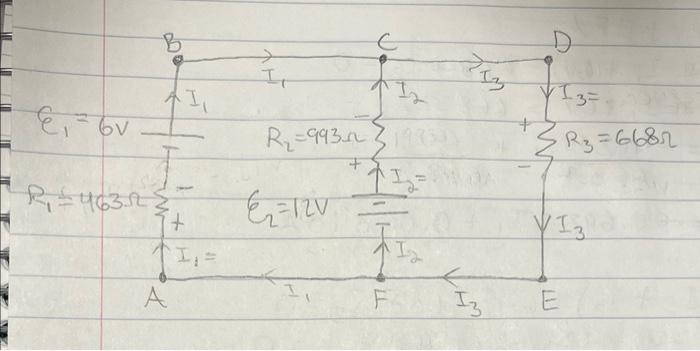 B
C
D
I₁
I₃
I₁
I₂
I₃=
ℰ₁=6V
R₂=993Ω
+
R₃=668Ω
-
-
+
-
R₁=463Ω
-
+
I₂=
ℰ₂=12V
I₃
I₁=
I₂
A
I₁
F
I₃
E